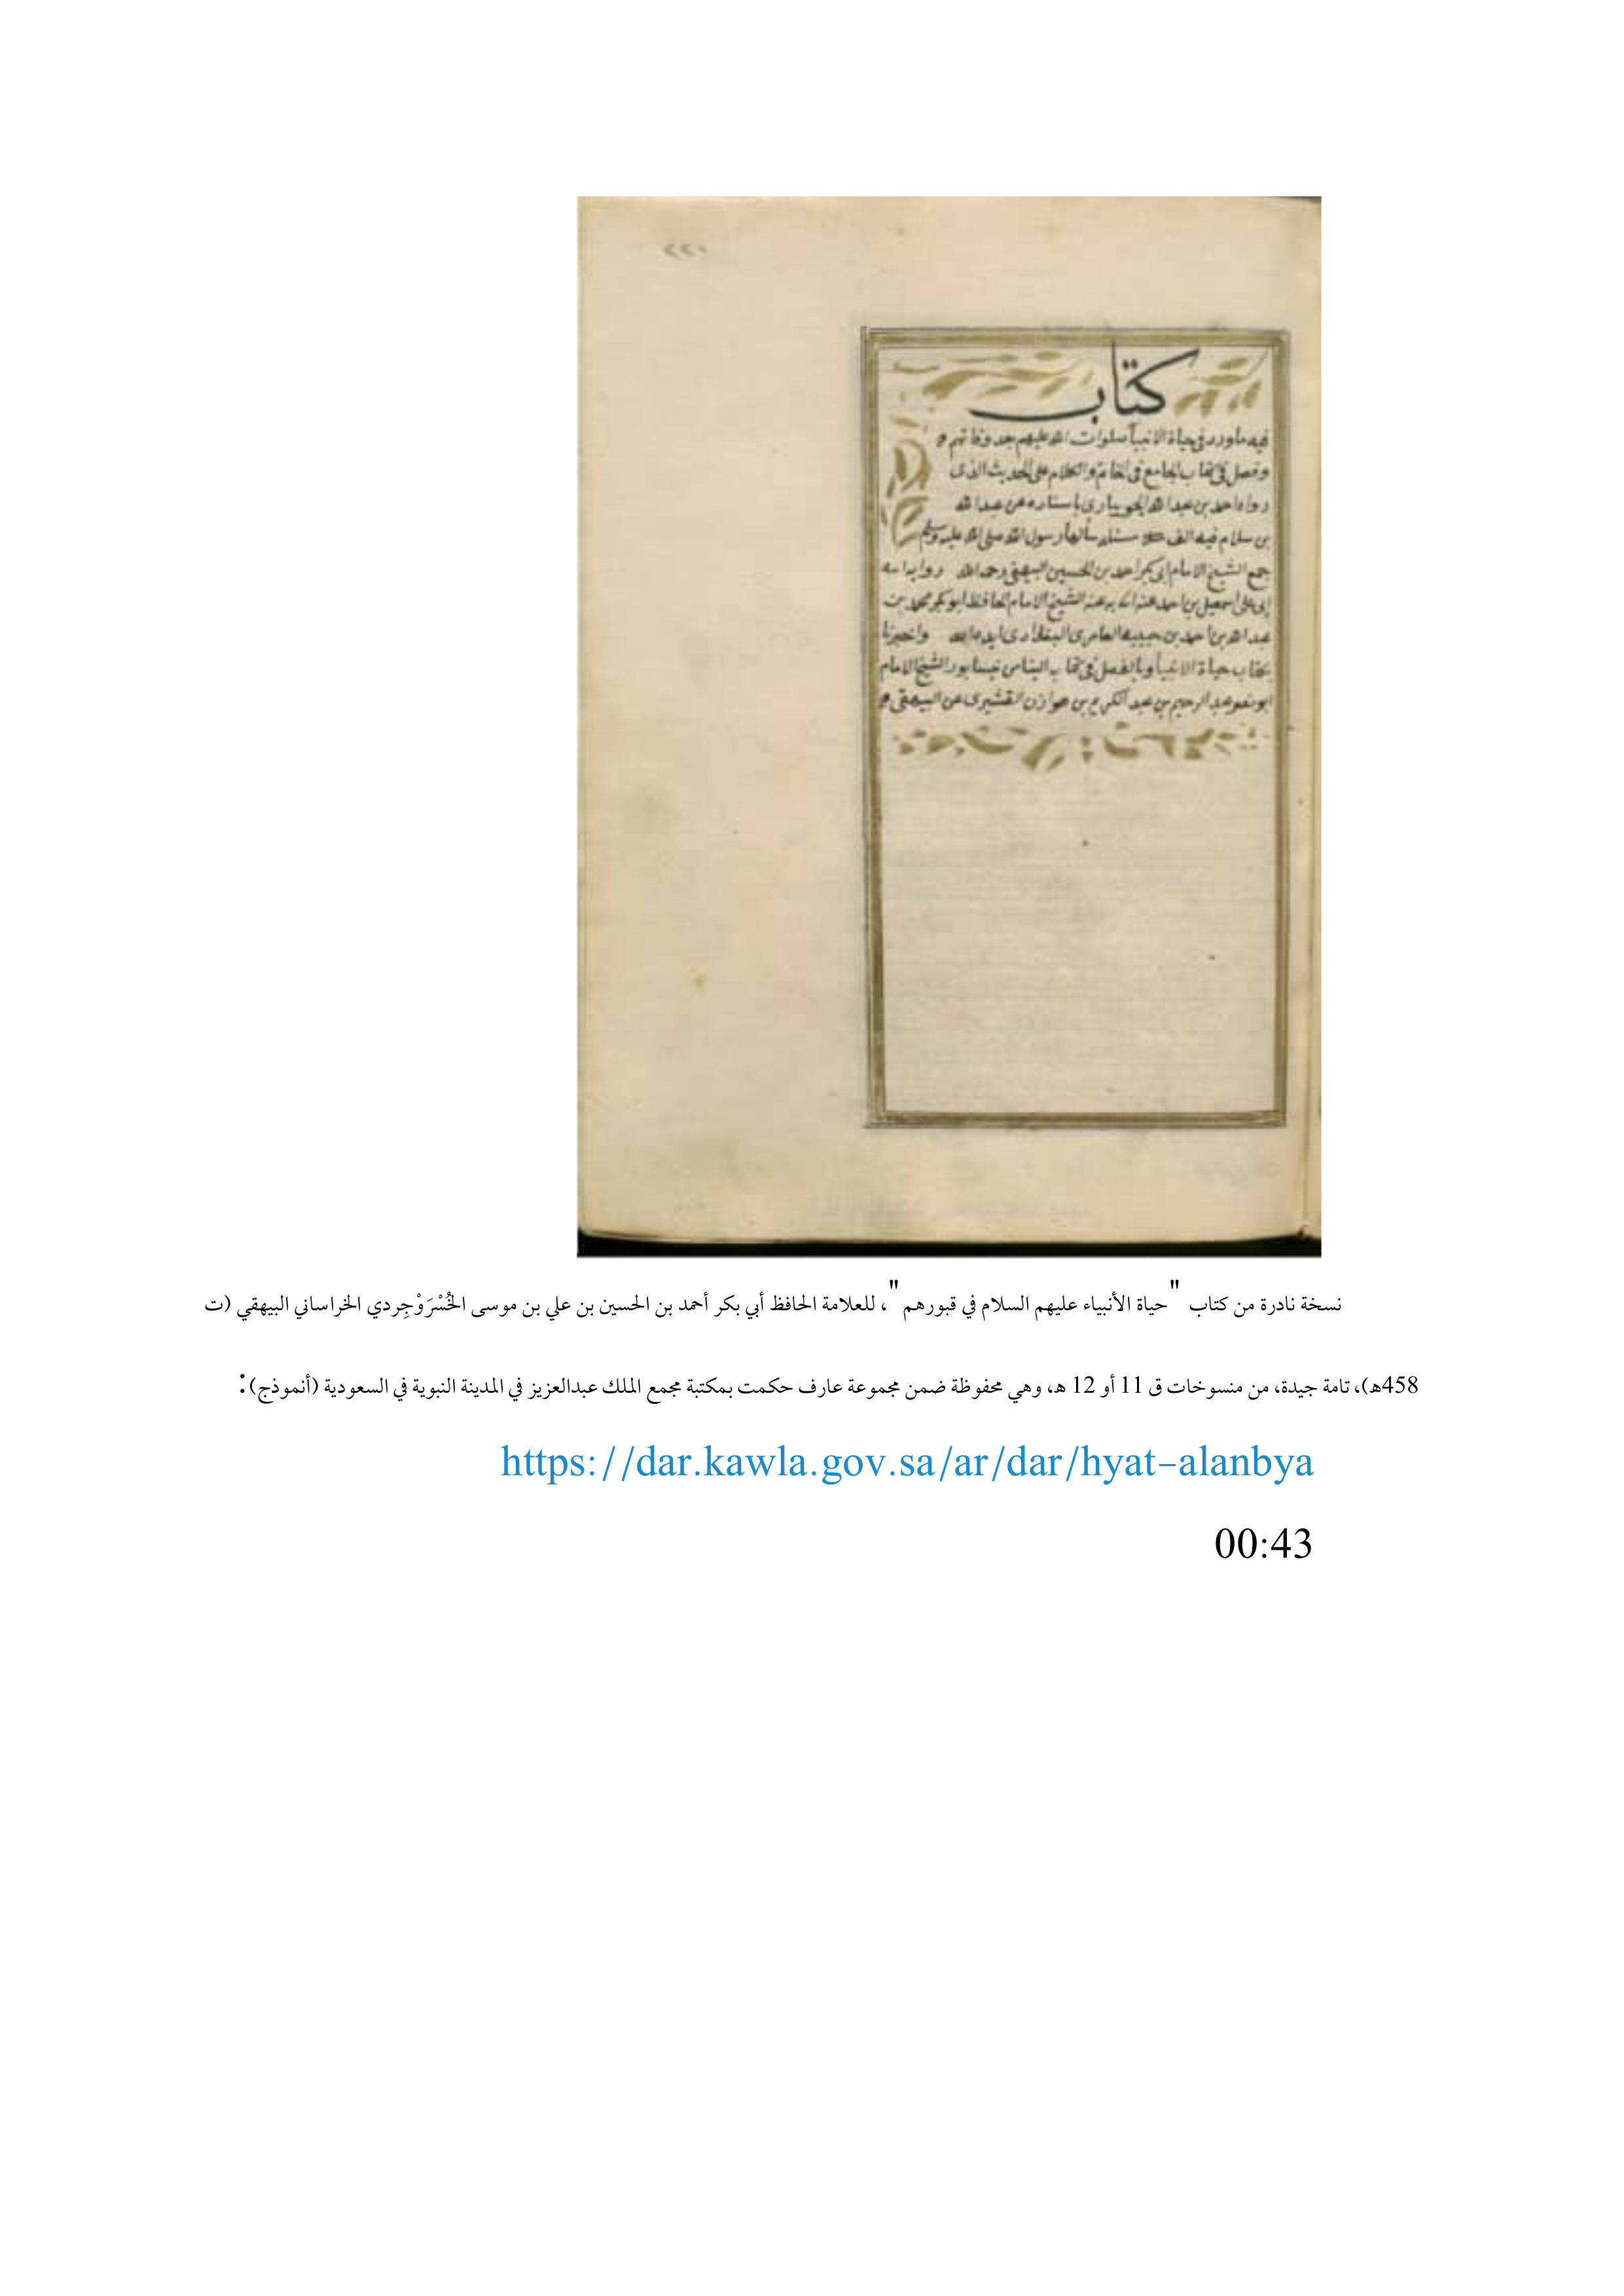 ٢٢٠
كتاب
فيه ما ورد في حياة الانبيآ صلوات الله عليهم بعد وفاتهم و
وفصل في كتاب الجامع في الخاتم والكلام على الحديث الذى
رواه احمد بن عبدالله الجويبارى باسناده عن عبدالله
بن سلام فيه الف مسئله سألها رسول الله صلى الله عليه وسلم
جمع الشيخ الامام ابى بكر احمد بن الحسين البيهقى رحمه الله رواية ابنه
ابى على اسمعيل بن احمد عنه الشيخ الامام الحافظ ابو بكر محمد بن
عبدالله بن احمد بن حبيبه العامرى البغدادى ايده الله واخبرنا
بكتاب حياة الانبيآ وبالفصل في كتابه نيسابور الشيخ الامام
ابو نصر عبد الرحيم بن عبد الكريم بن هوازن القشيرى عن البيهقى
نسخة نادرة من كتاب "حياة الأنبياء عليهم السلام في قبورهم"، للعلامة الحافظ أبي بكر أحمد بن الحسين بن علي بن موسى الخُسْرَوْجِردي الخراساني البيهقي (ت
458هـ)، تامة جيدة، من منسوخات ق 11 أو 12 هـ، وهي محفوظة ضمن مجموعة عارف حكمت بمكتبة مجمع الملك عبدالعزيز في المدينة النبوية في السعودية (أنموذج):
https://dar.kawla.gov.sa/ar/dar/hyat-alanbya
00:43